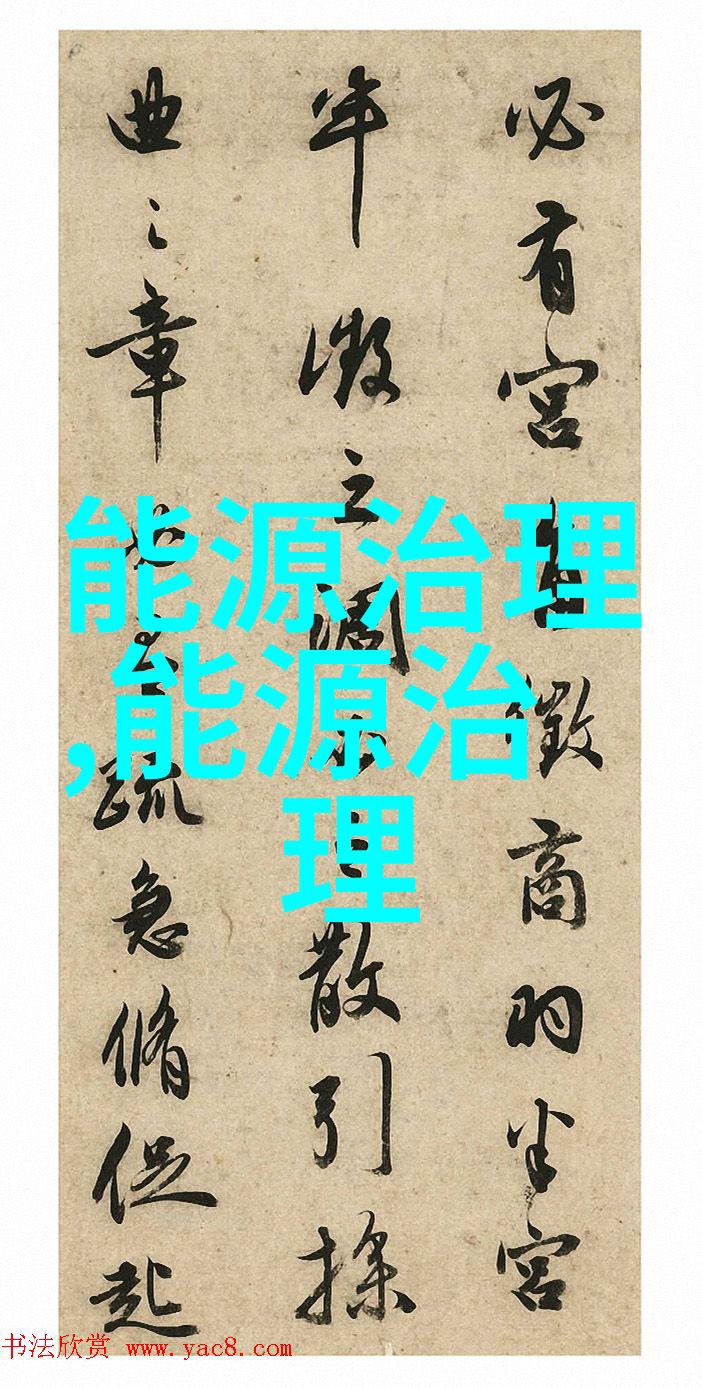 必有宫徵商羽半宫
半徵之調散引操
曲之章疏急脩促起
能源治理
,能源治
理
书法欣赏 www.yac8.com